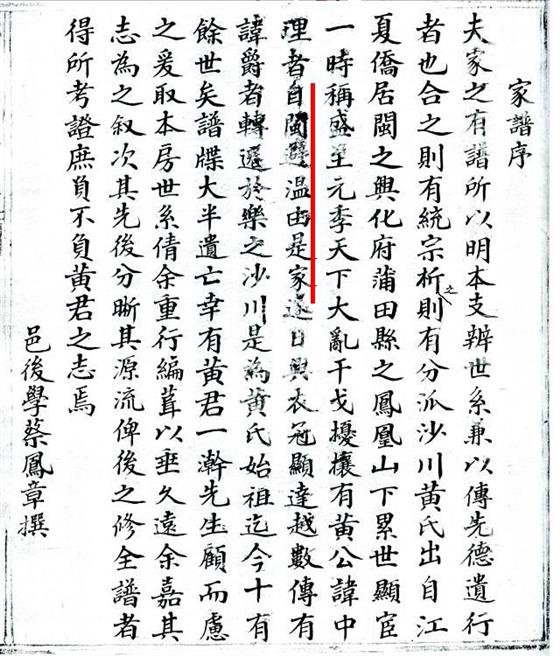 家譜序
夫家之有譜所以明本支辨世系兼以傳先德遺行
者也合之則有統宗析之則有分派沙川黃氏出自江
夏僑居閩之興化府蒲田縣之鳳凰山下累世顯宦
一時稱盛至元季天下大亂干戈擾攘有黃公諱中
理者自閩避溫由是家遂日興衣冠顯達越數傳有
諱爵者轉遷於樂之沙川是為黃氏始祖迄今十有
餘世矣譜牒大半遺亡幸有黃君一漸先生顧而慮
之爰取本房世系倩余重行編葺以垂久遠余嘉其
志為之敘次其先後分晰其源流俾後之修全譜者
得所考證庶負不負黃君之志焉
邑後學蔡鳳章撰